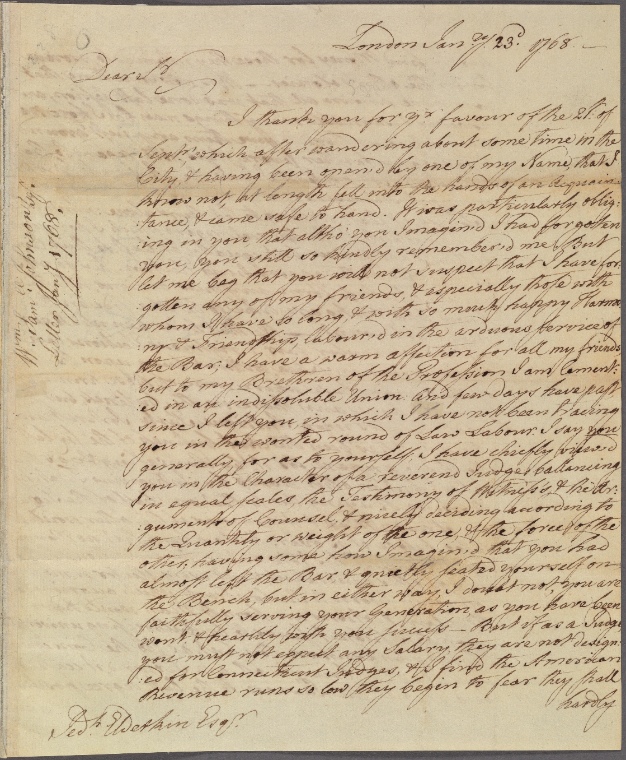 London Janry 23d. 1768 —
Dear Sr.
I thank you for yr. favour of the 21t. of
Septr. which after wandering about some time in the
City & having been open'd by one of my Name, that I
know not at length fell into the hands of an Acquain-
tance & came safe to hand. It was particularly oblig-
ing in you that altho' you Imagin'd I had forgotten
you, you still so kindly remember'd me. But
let me beg that you will not Suspect that I have for-
gotten any of my friends, & especially those with
whom I have so long & with so much happy Harmo-
ny & Friendship labour'd in the arduous Service of
the Bar; I have a warm affection for all my friends
but to my Brethren of the Profession I am Cement-
ed in an indissoluble Union and few days have past
since I left you, in which I have not been tracing
you in the wonted round of Law Labour. I say you
generally for as to yourself I have chiefly view'd
you in the Character of a reverend Judge, ballancing
in equal scales the Testimony of Witnesses, & the Ar-
guments of Counsel, & nicely deciding according to
the Quantity or weight of the one, & the force of the
other, having some how Imagin'd that you had
almost left the Bar & quietly seated yourself on
the Bench, but in either way, I doubt not, you are
faithfully serving your Generation as you have been
wont & heartily wish you success — But if as a Judge
you must not expect any Salary, they are not design-
ed for Connecticut Judges, & I find the American
Revenue runs so low they begin to fear they shall
hardly
Jedh. Elderkin Esqr.
Wm. Saml. Johnson's
Letter Jany 1768.